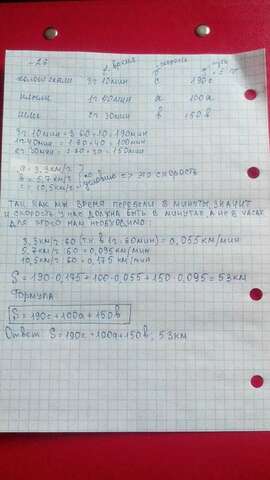 время скорость путь
t v S
3ч 10мин с 190с
плыли 1ч 40мин а 100а
шли 2ч 30мин в 150в
3ч 10мин = 3·60+10=190мин
1ч 40мин = 1·60+40=100мин
2ч 30мин = 2·60+30=150мин
а = 3,3км/ч
в = 5,7км/ч по условию => это скорость
с = 10,5км/ч
ТАК КАК МЫ ВРЕМЯ ПЕРЕВЕЛИ В МИНУТЫ, ЗНАЧИТ
И СКОРОСТЬ У НАС ДОЛЖНА БЫТЬ В МИНУТАХ А НЕ В ЧАСАХ
ДЛЯ ЭТОГО НАМ НЕОБХОДИМО:
3,3км/ч : 60 (т.к в 1ч 60мин) = 0,055км/мин
5,7км/ч : 60 = 0,095км/мин
10,5км/ч : 60 = 0,175 км/мин
S = 190·0,175+100·0,055+150·0,095=53км
Формула:
S = 190с+100а+150в
Ответ: S = 190с+100а+150в, 53км